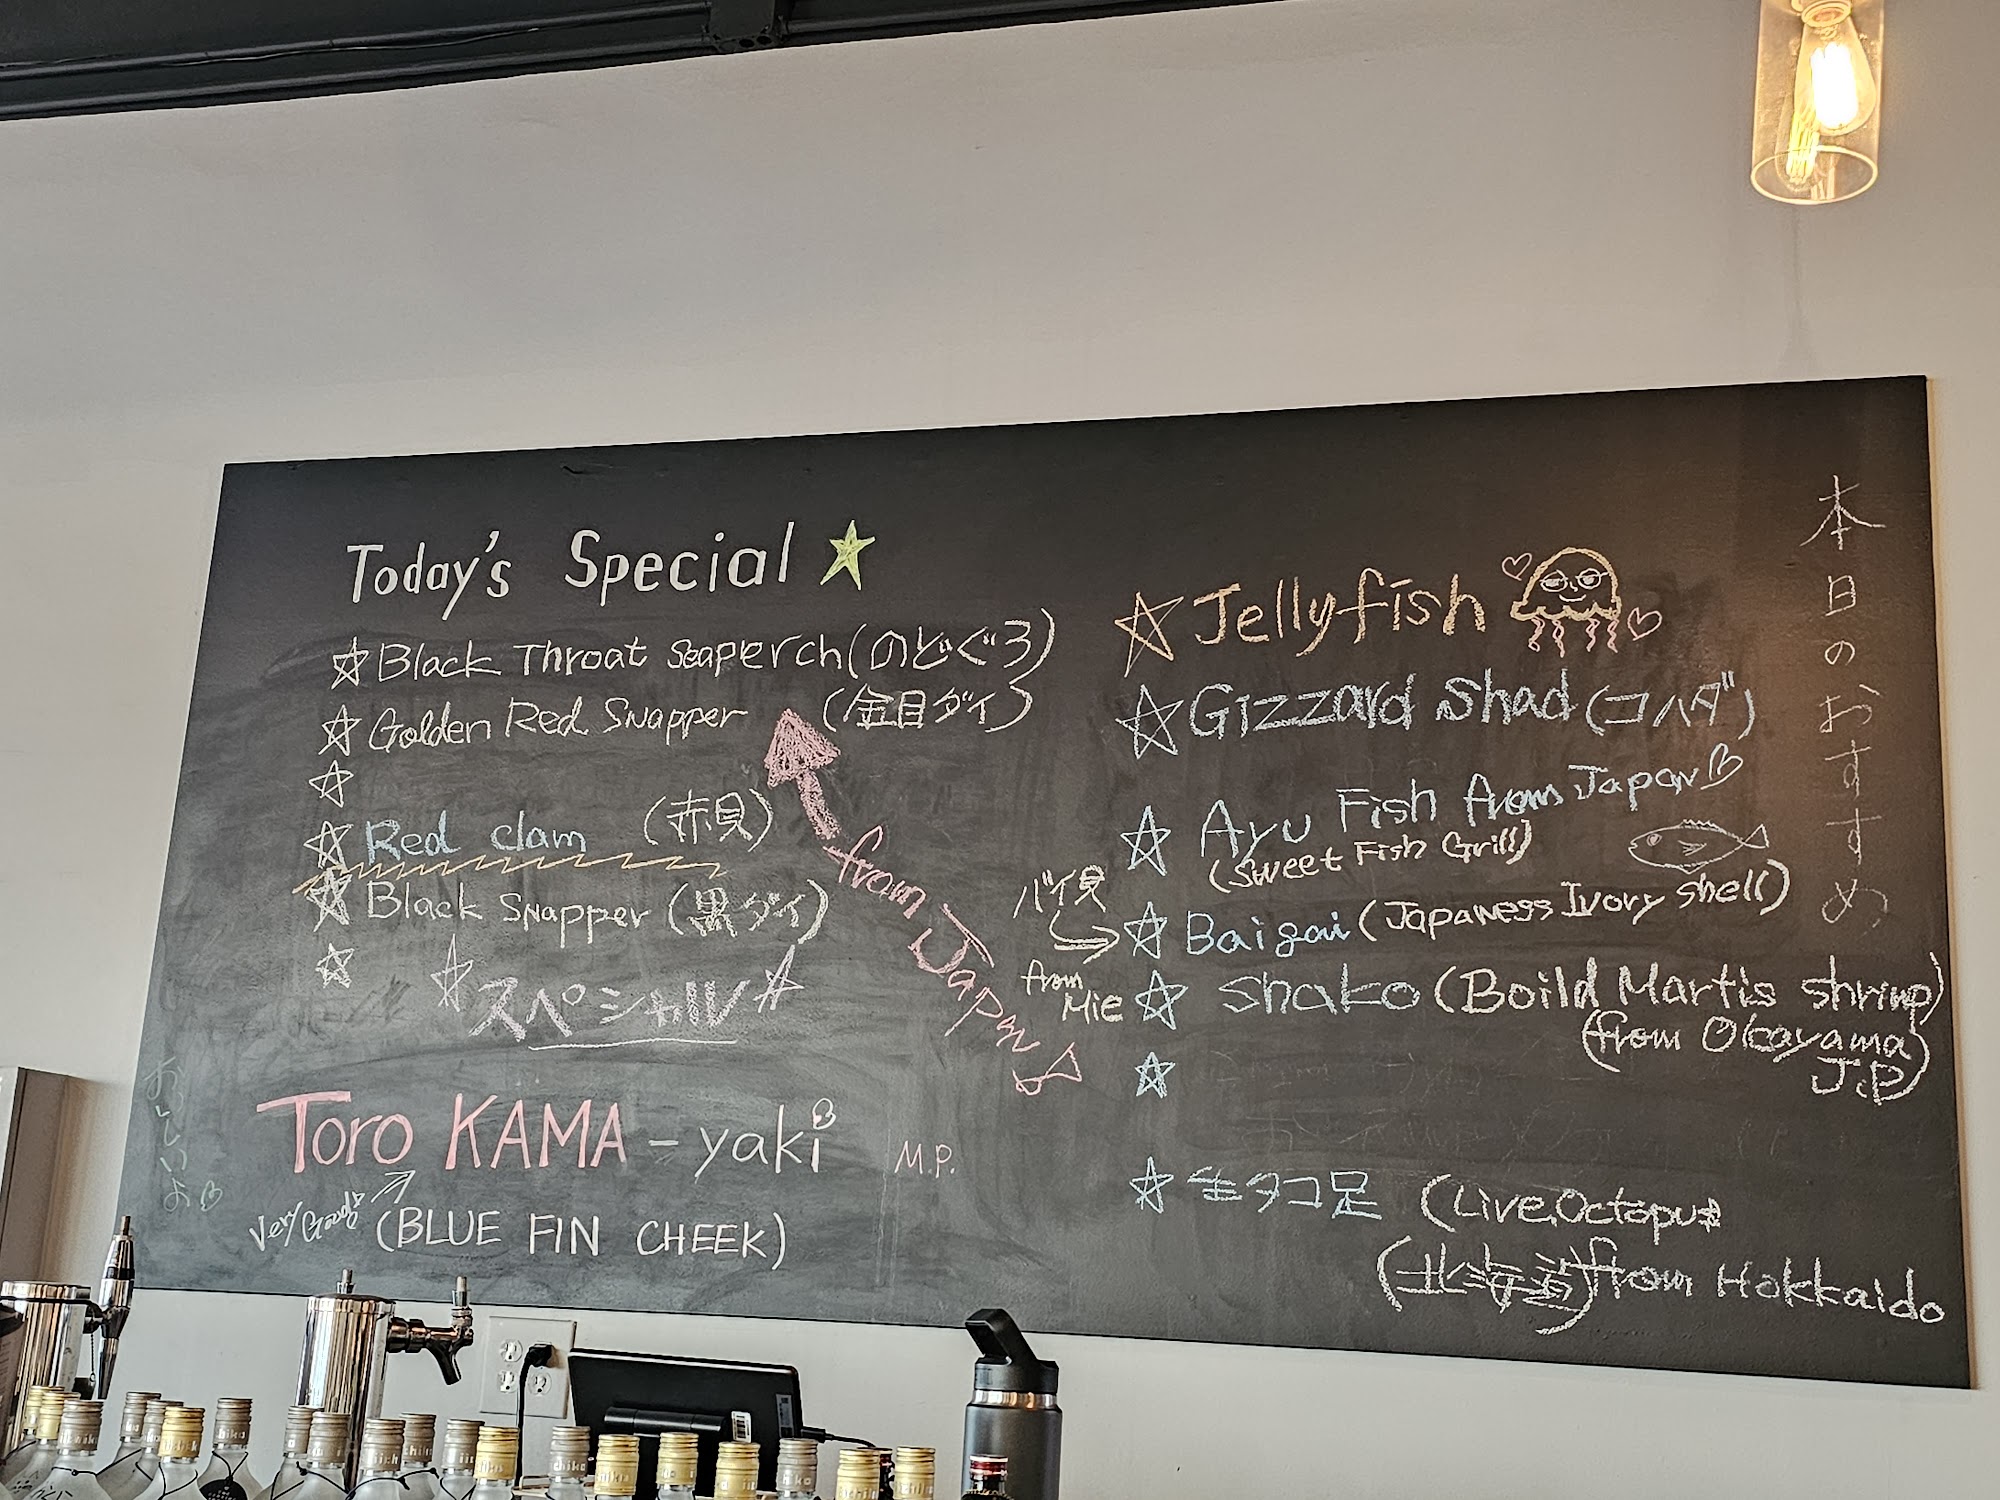 Today's Special
Black Throat Seaperch (のどぐろ)
Golden Red Snapper (金目ダイ)
Red clam (赤貝)
Black Snapper (黒ダイ)
スペシャル
from Japan
Toro KAMA - yaki M.P.
Very Good
(BLUE FIN CHEEK)
おいしいよ
Jellyfish
Gizzard Shad (コハダ)
Ayu Fish from Japan
(Sweet Fish Grill)
バイ貝
Baigai (Japaness Ivory shell)
from Mie
Shako (Boild Martis shrimp)
(from Okayama
J.P)
生タコ足 (Live Octopus
(北海道) from Hokkaido
本日のおすすめ